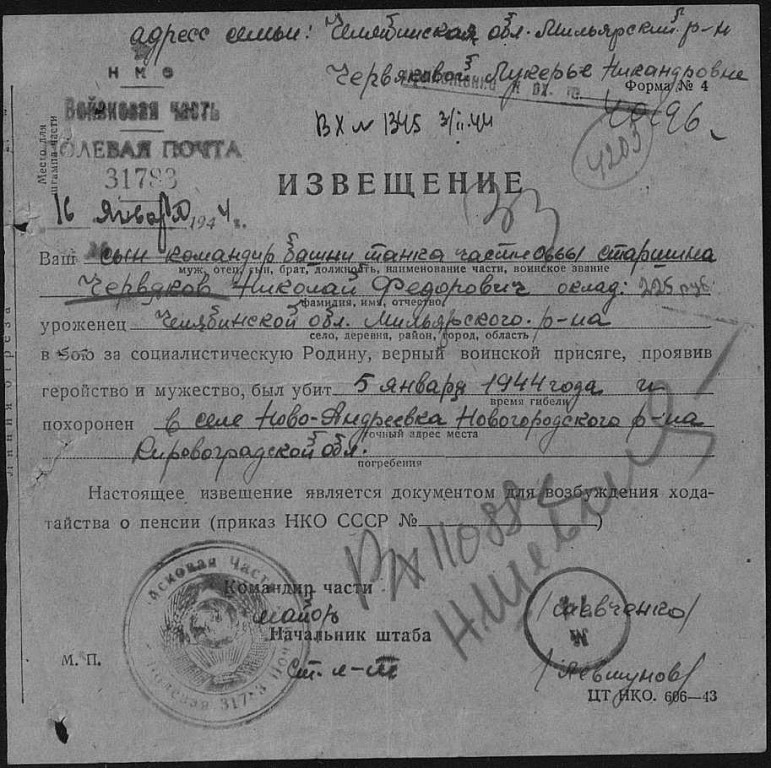 адрес семьи: Челябинская обл. Мильярский р-н
Червяковой Лукерье Никандровне
Форма № 4
НКО
Войсковая часть
ПОЛЕВАЯ ПОЧТА
31793
Место для штампа части
ВХ № 1345 3/II.44
4203
ИЗВЕЩЕНИЕ
16 января 1944 г.
Ваш сын командир башни танка части старшина
муж, отец, сын, брат, должность, наименование части, воинское звание
Червяков Николай Федорович оклад: 225 руб.
фамилия, имя, отчество
уроженец Челябинской обл. Мильярского р-на
село, деревня, район, город, область
в бою за социалистическую Родину, верный воинской присяге, проявив
геройство и мужество, был убит 5 января 1944 года и
время гибели
похоронен в селе Ново-Андреевка Новогородского р-на
точный адрес места
Кировоградской обл.
погребения
Настоящее извещение является документом для возбуждения хода-
тайства о пенсии (приказ НКО СССР № )
Командир части
майор /Шевченко/
Начальник штаба
М. П.
Ст. л-т
ЦТ НКО. 606—43
линия отреза